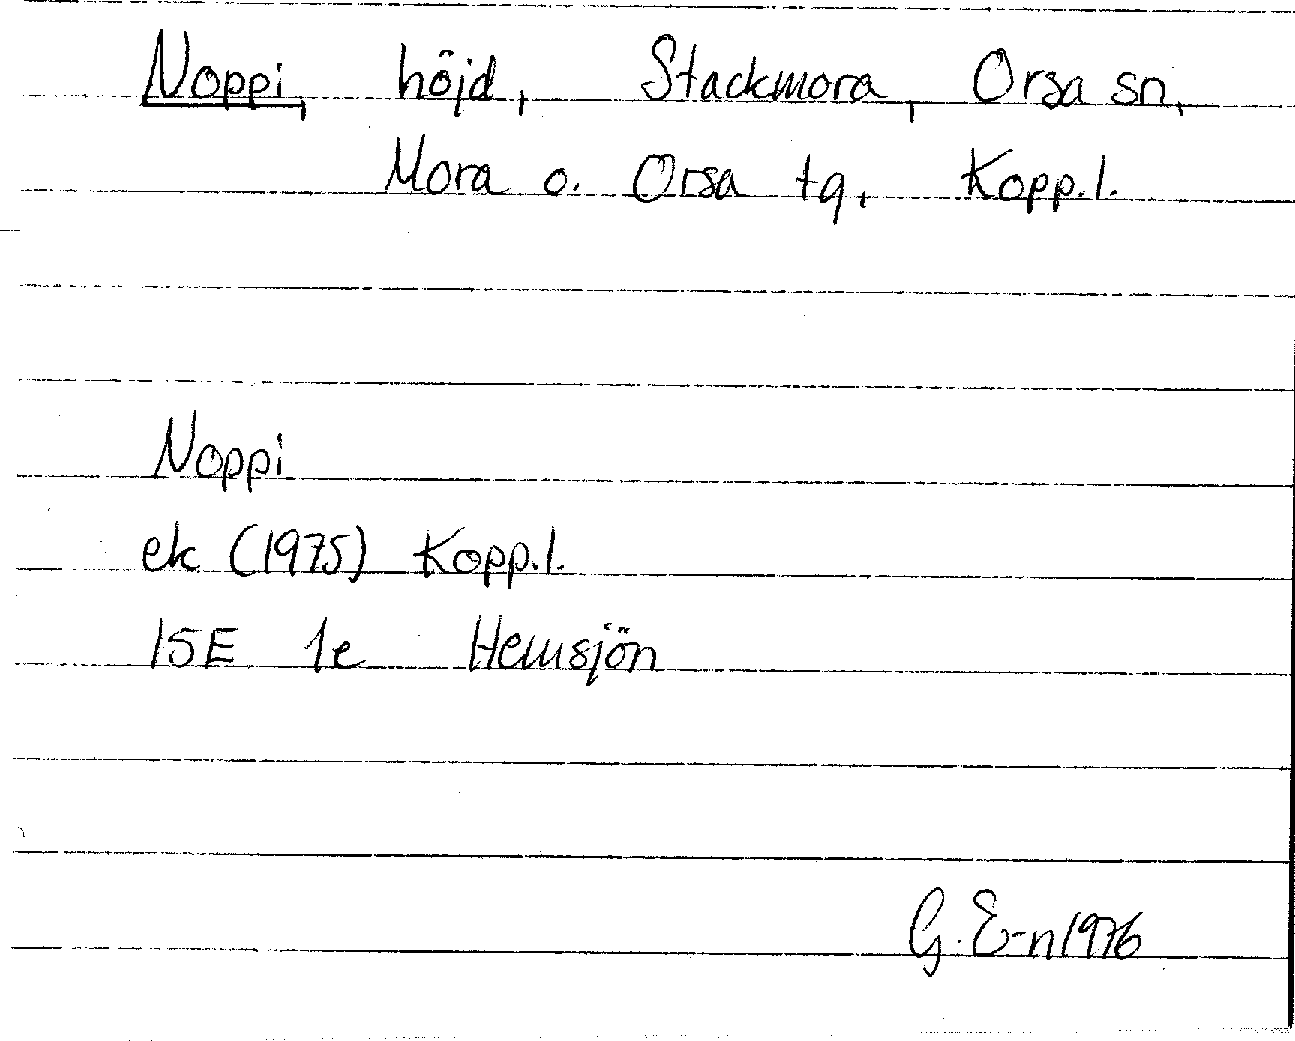 Noppi, höjd, Stackmora, Orsa sn,
Mora o. Orsa tg, Kopp.l.
Noppi
ek (1975) Kopp.l.
15E 1e Hemsjön
G. E-n 1976